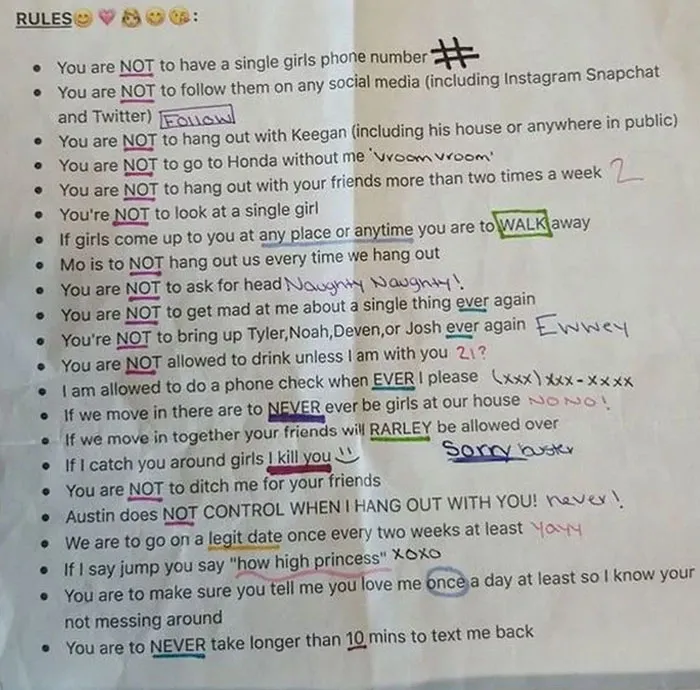 RULES😊💗👸😊😘:
• You are NOT to have a single girls phone number #
• You are NOT to follow them on any social media (including Instagram Snapchat
and Twitter) Follow
• You are NOT to hang out with Keegan (including his house or anywhere in public)
• You are NOT to go to Honda without me 'vroom vroom'
• You are NOT to hang out with your friends more than two times a week 2
• You're NOT to look at a single girl
• If girls come up to you at any place or anytime you are to WALK away
• Mo is to NOT hang out us every time we hang out
• You are NOT to ask for head Naughty Naughty!
• You are NOT to get mad at me about a single thing ever again
• You're NOT to bring up Tyler,Noah,Deven,or Josh ever again Ewwey
• You are NOT allowed to drink unless I am with you 21?
• I am allowed to do a phone check when EVER I please (xxx) xxx-xxxx
• If we move in there are to NEVER ever be girls at our house NO NO!
• If we move in together your friends will RARLEY be allowed over
• If I catch you around girls I kill you :) Sorry buster
• You are NOT to ditch me for your friends
• Austin does NOT CONTROL WHEN I HANG OUT WITH YOU! never!
• We are to go on a legit date once every two weeks at least Yayy
• If I say jump you say "how high princess" XOXO
• You are to make sure you tell me you love me once a day at least so I know your
not messing around
• You are to NEVER take longer than 10 mins to text me back